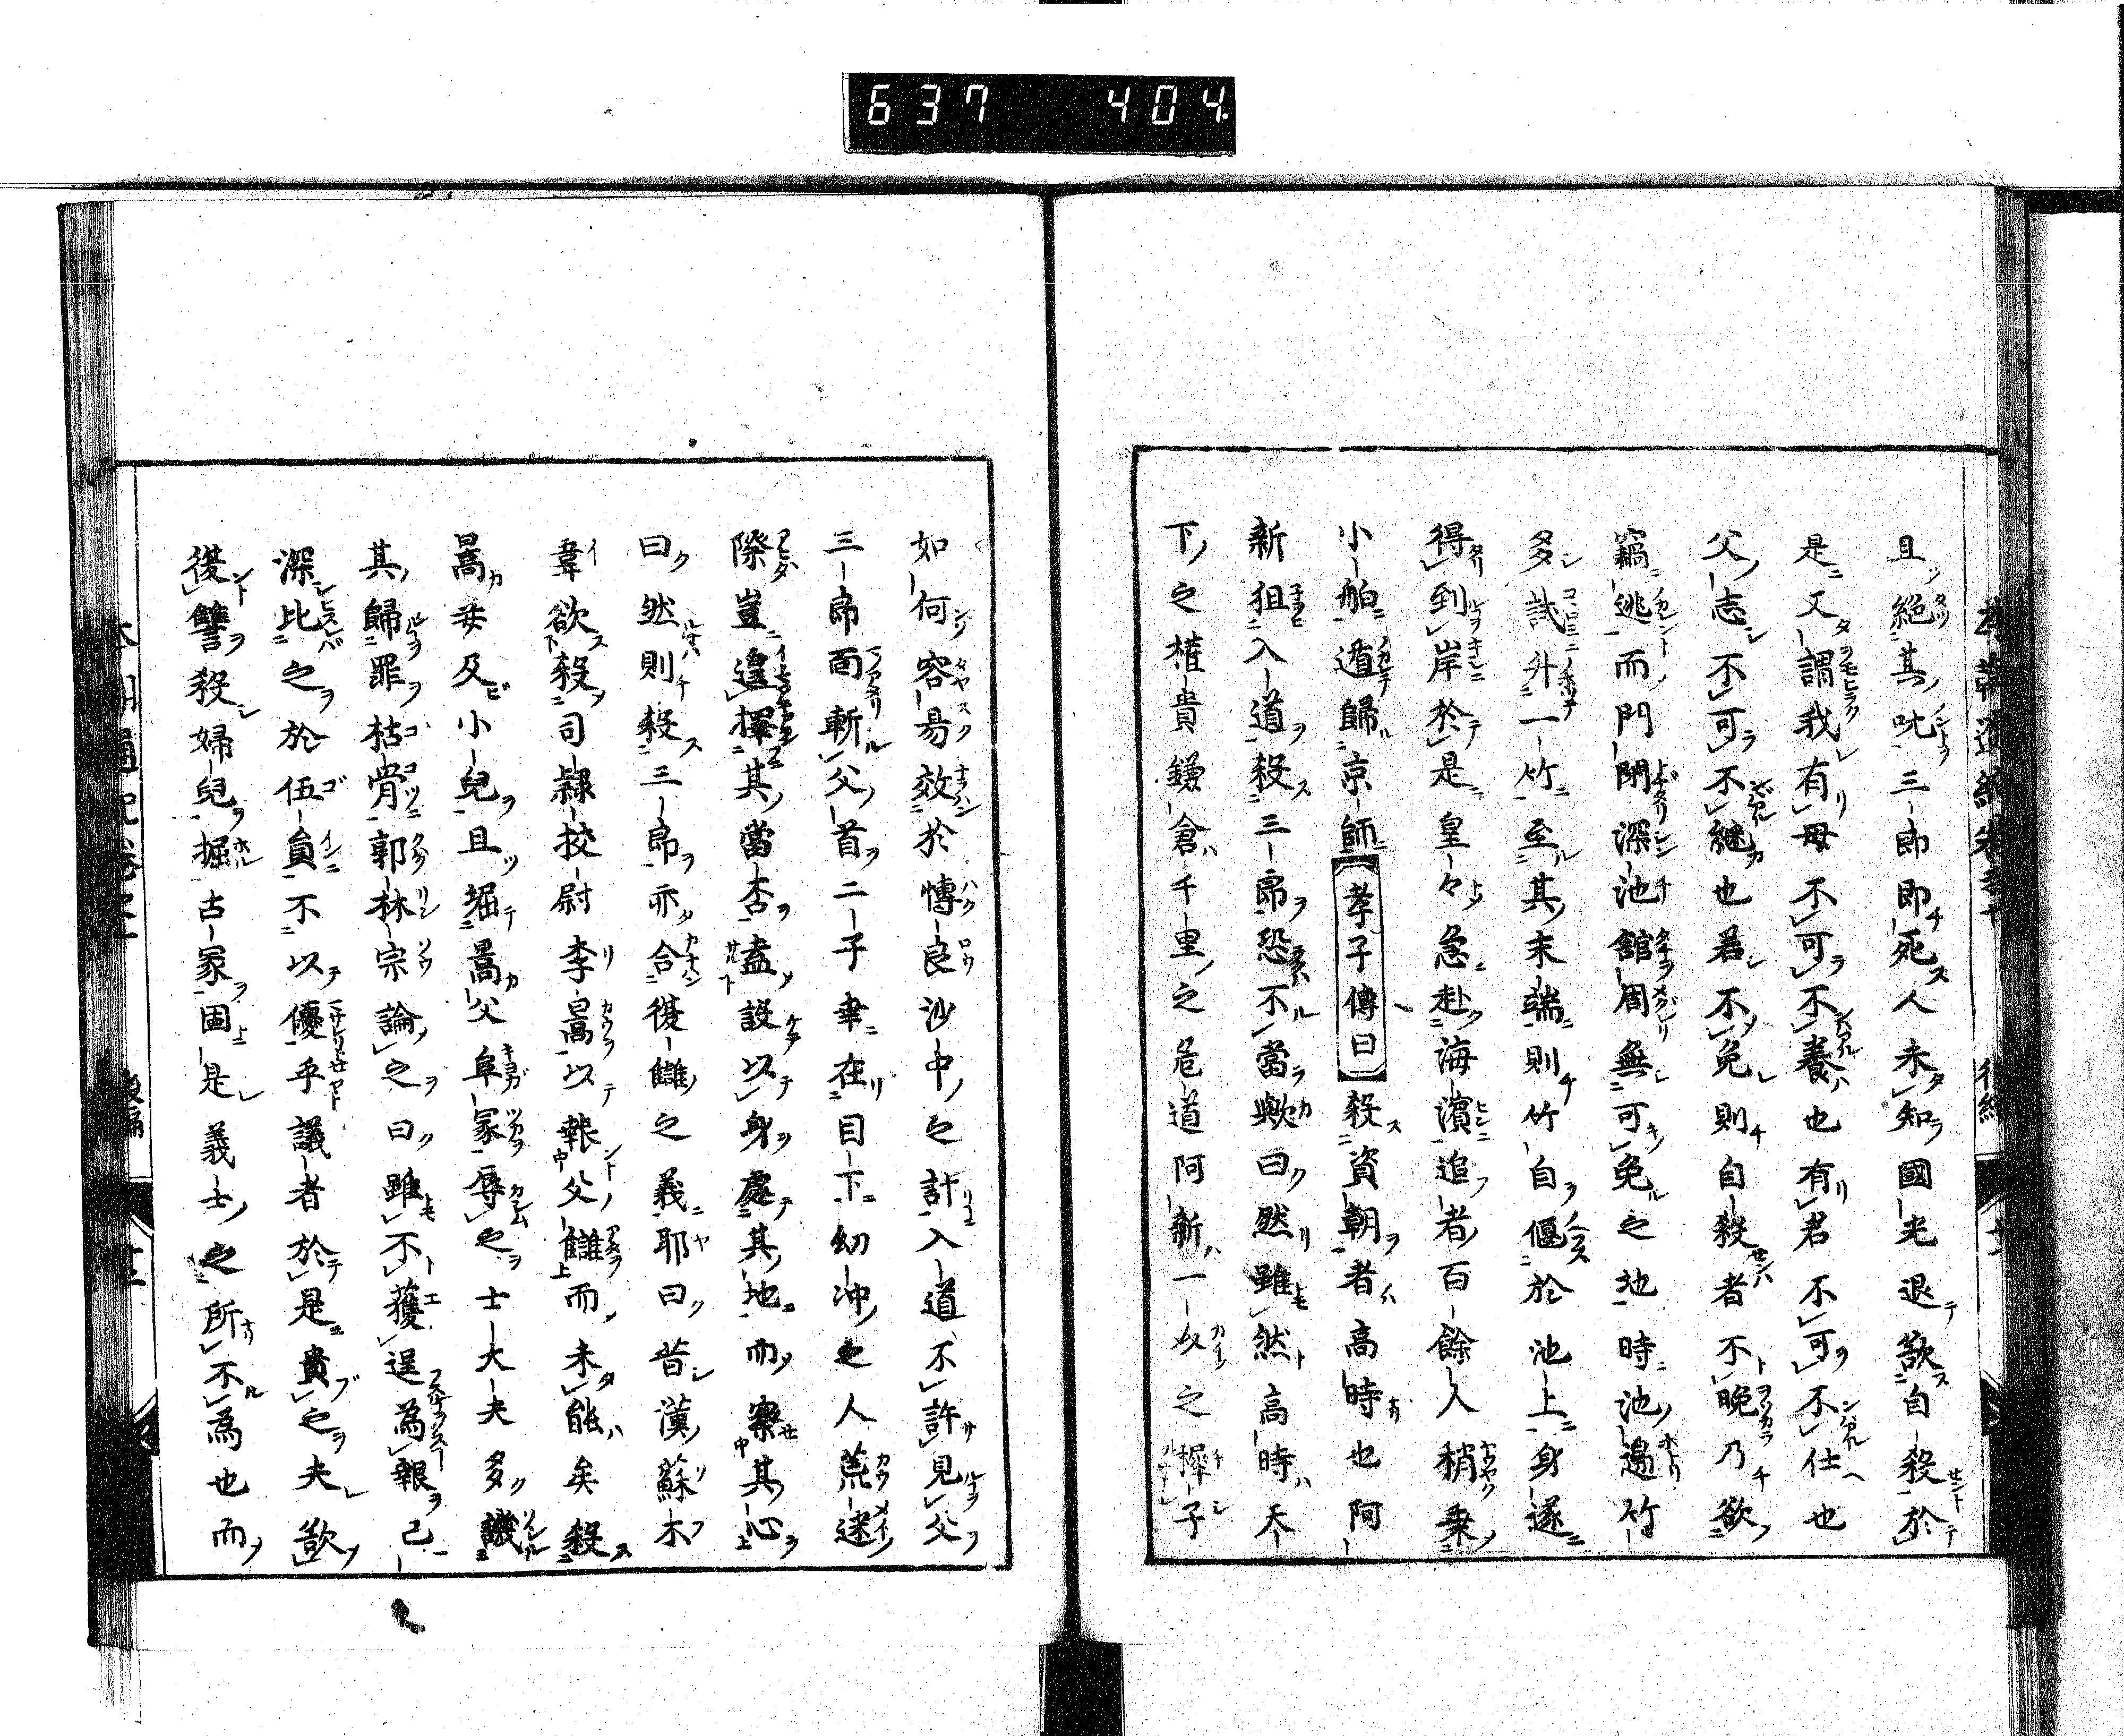 637 404.
且絕其吭三郎即死人未知國光退欲自殺於
是又謂我有母不可不養也有君不可不仕也
父志不可不繼也若不免則自殺者不晚乃欲
竊逃而門閉深池館周無可免之地時池邉竹
多試升一竹至其末端則竹自偃於池上身遂
得到岸於是皇々急赴海濱追者百餘人稍乗
小舶遁歸京師【孝子傳曰】殺資朝者高時也阿
新狙入道殺三郎恐不當歟曰然雖然高時天
下之権貴鎌倉千里之危道阿新一奴之穉子
如何容易效於慱良沙中之計入道不許見父
三郎面斬父首二子幸在目下幼冲之人荒迷
際豈遑擇其當否盍設以身處其地而察其心
曰然則殺三郎亦合復讎之義耶曰昔漢蘇木
韋欲殺司隷挍尉李暠以報父讎而未能矣殺
暠妾及小兒且堀暠父阜冢辱之士大夫多譏
其歸罪枯骨郭林宗論之曰雖不獲逞為報己
深比之於伍負不以優乎議者於是貴之夫欲
復讐殺婦兒掘古冢固是義士之所不為也而